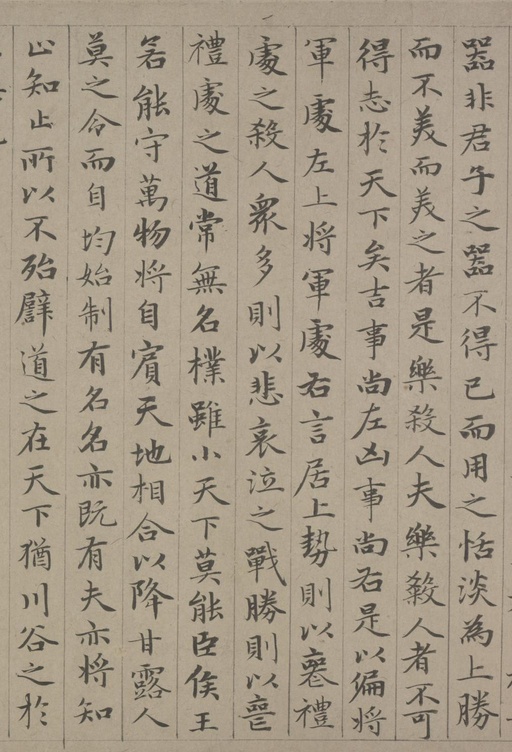 器非君子之器不得已而用之恬淡為上勝
而不美而美之者是樂殺人夫樂殺人者不可
得志於天下矣吉事尚左凶事尚右是以偏將
軍處左上將軍處右言居上勢則以喪禮
處之殺人衆多則以悲哀泣之戰勝則以喪
禮處之道常無名樸雖小天下莫能臣侯王
若能守萬物將自賓天地相合以降甘露人
莫之令而自均始制有名名亦既有夫亦將知
止知止所以不殆譬道之在天下猶川谷之於